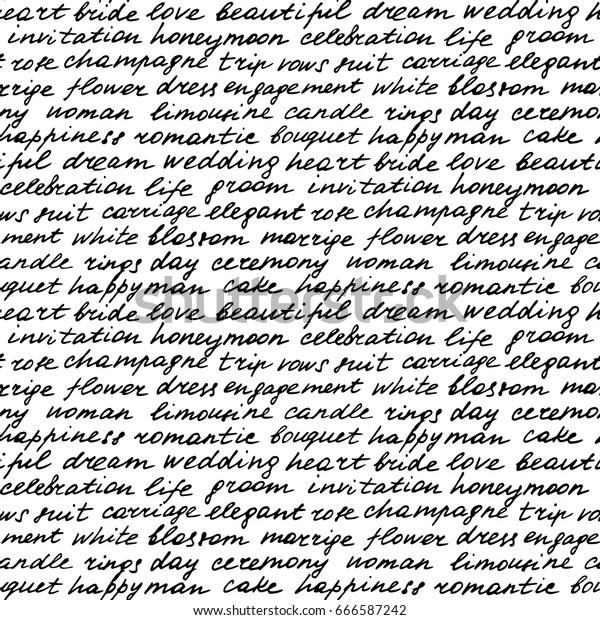 heart bride love beautiful dream wedding h
invitation honeymoon celebration life groom
t rose champagne trip vows suit carriage elegant
rrige flower dress engagement white blossom mar
ny woman limousine candle rings day ceremo
happiness romantic bouquet happy man cake h
iful dream wedding heart bride love beauti
celebration life groom invitation honeymoon
ws suit carriage elegant rose champagne trip vo
ment white blossom marrige flower dress engage
andle rings day ceremony woman limousine ca
uquet happy man cake happiness romantic bou
heart bride love beautiful dream wedding h
invitation honeymoon celebration life groom
t rose champagne trip vows suit carriage elegant
rrige flower dress engagement white blossom mar
ny woman limousine candle rings day ceremo
happiness romantic bouquet happy man cake h
iful dream wedding heart bride love beauti
celebration life groom invitation honeymoon
ws suit carriage elegant rose champagne trip vo
ment white blossom marrige flower dress engage
andle rings day ceremony woman limousine ca
uquet happy man cake happiness romantic bou
shutterstock
shutterstock.com · 666587242